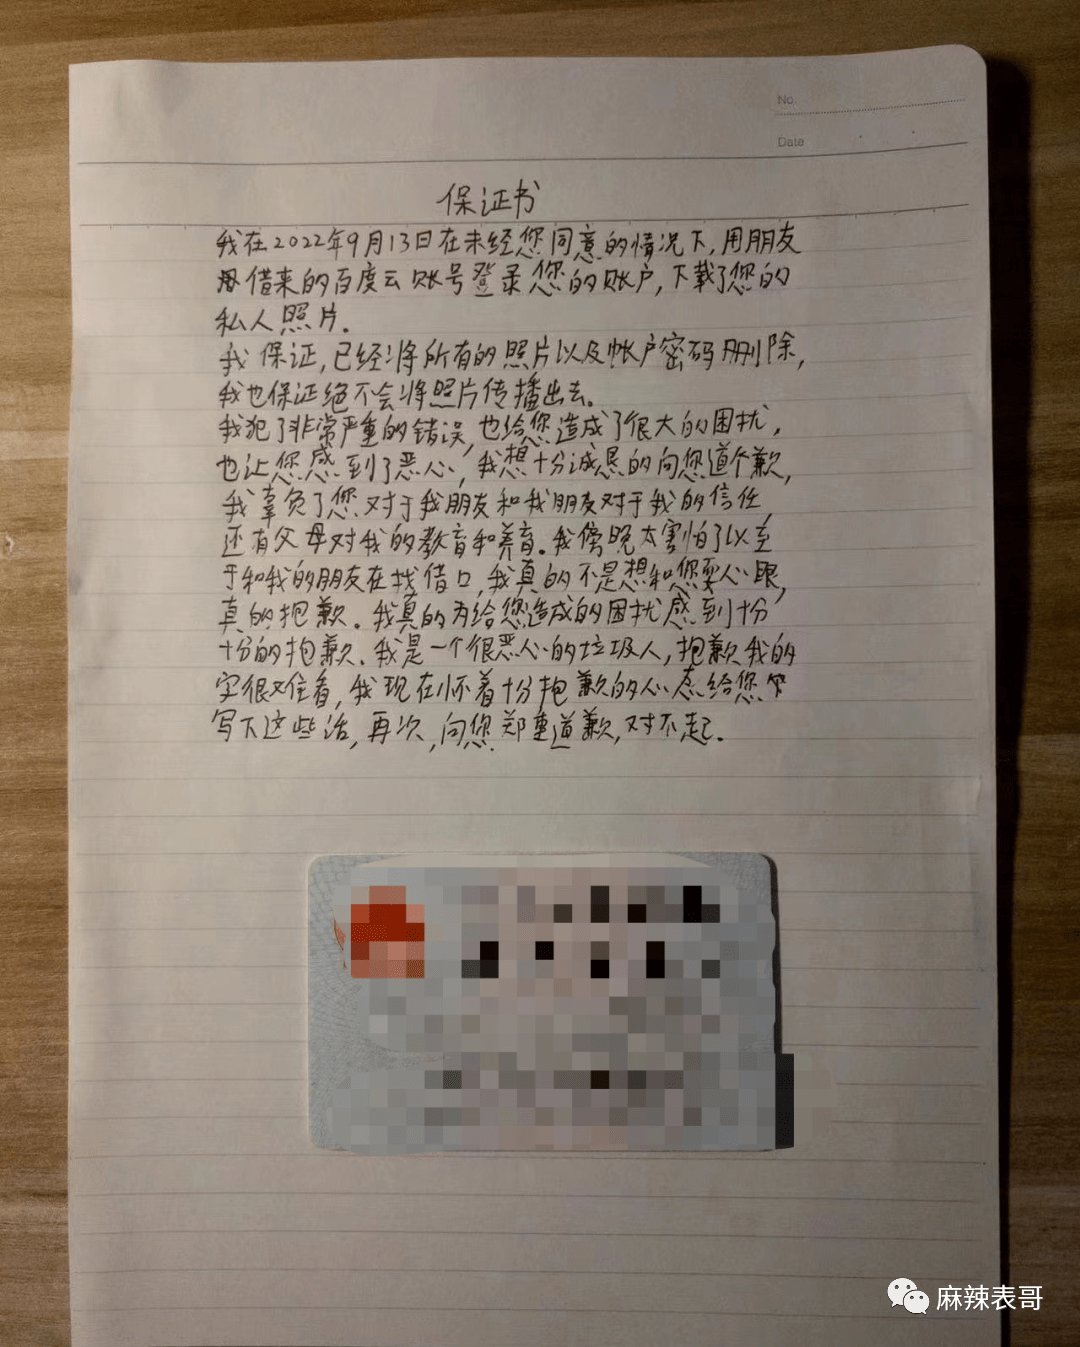 No.
Date
保证书
我在2022年9月13日在未经您同意的情况下,用朋友
借来的百度云账号登录您的账户,下载了您的
私人照片.
我保证,已经将所有的照片以及帐户密码删除,
我也保证绝不会将照片传播出去。
我犯了非常严重的错误,也给您造成了很大的困扰,
也让您感到了恶心,我想十分诚恳的向您道个歉,
我辜负了您对于我朋友和我朋友对于我的信任,
还有父母对我的教育和养育.我傍晚太害怕了以至
于和我的朋友在找借口,我真的不是想和您耍心眼,
真的抱歉.我真的为给您造成的困扰感到十分
十分的抱歉.我是一个很恶心的垃圾人,抱歉我的
字很难看,我现在怀着十分抱歉的心态给您
写下这些话,再次,向您郑重道歉,对不起.
麻辣表哥